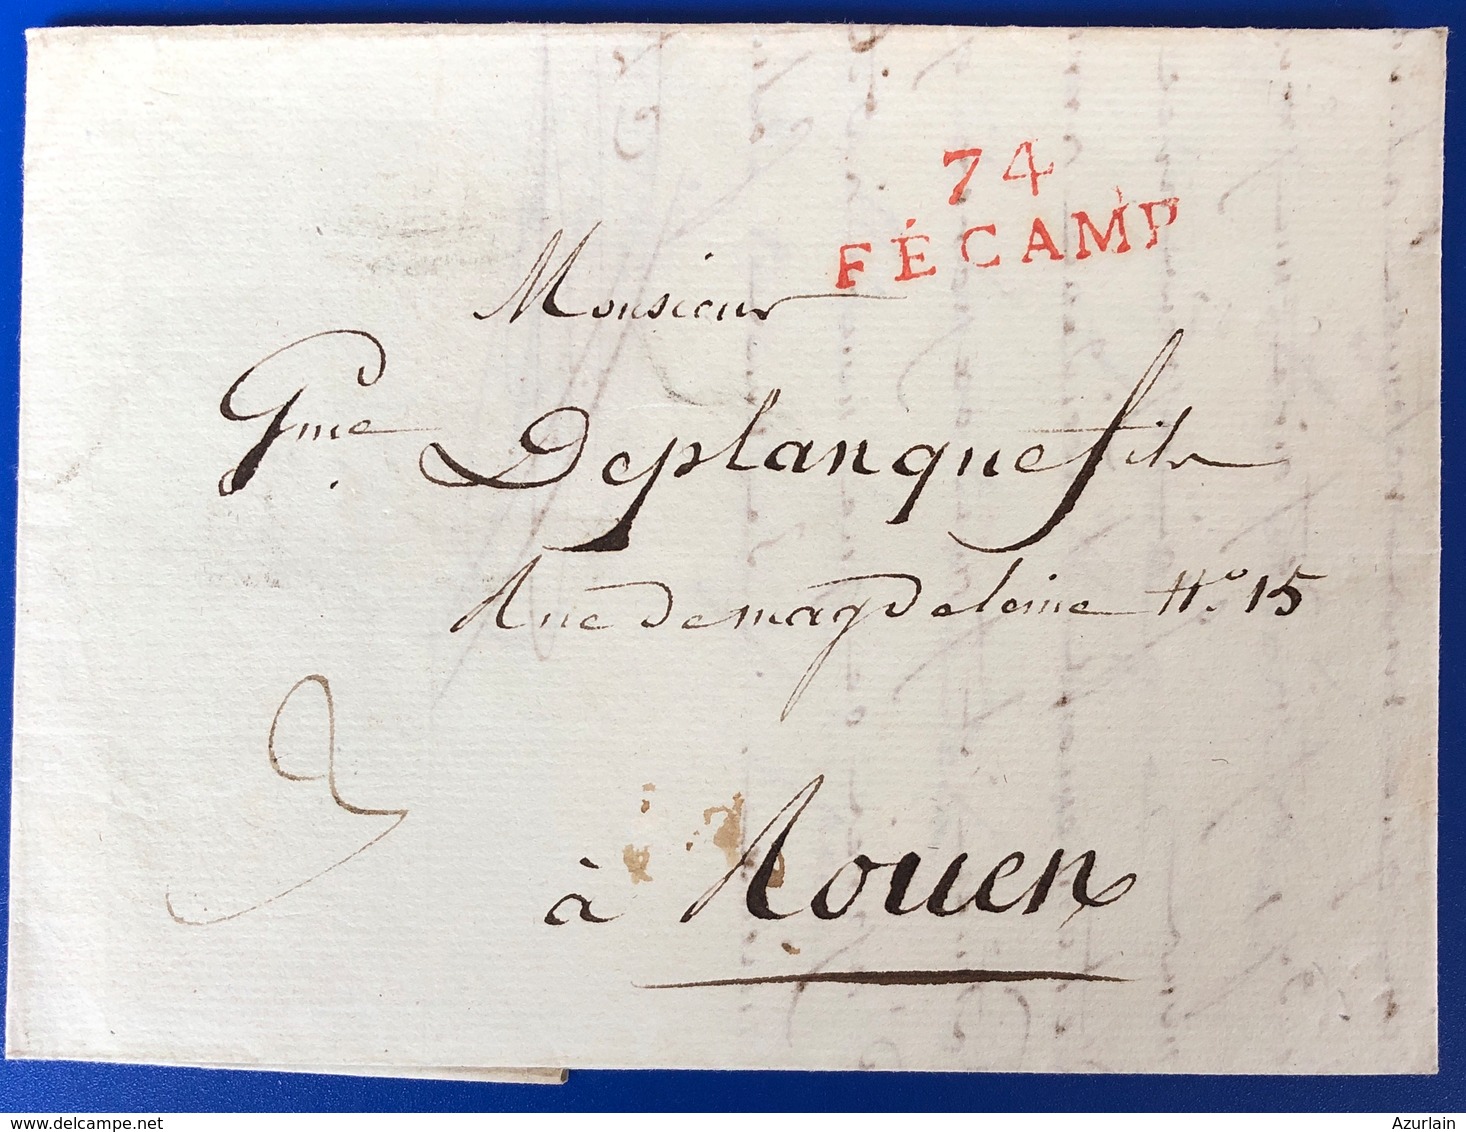 74
FÉCAMP
Monsieur
Gme. Deplanque fils
Rue de magdeleine No. 15
3
à Rouen
delcampe.net
Azurlain